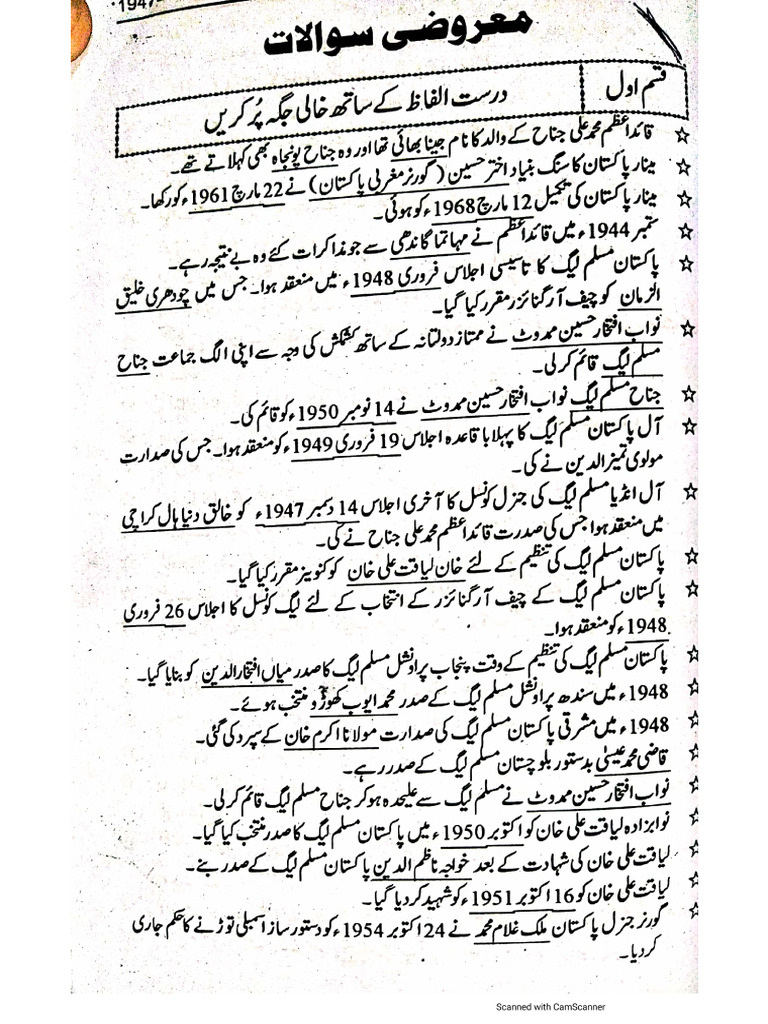 1947ء
معروضی سوالات
قسم اول
درست الفاظ کے ساتھ خالی جگہ پُر کریں
☆ قائداعظم محمد علی جناح کے والد کا نام جینا بھائی تھا اور وہ جناح پونجاہ بھی کہلاتے تھے۔
☆ مینار پاکستان کا سنگ بنیاد اختر حسین (گورنر مغربی پاکستان) نے 22 مارچ 1961ء کو رکھا۔
☆ مینار پاکستان کی تکمیل 12 مارچ 1968ء کو ہوئی۔
☆ ستمبر 1944ء میں قائداعظم نے مہاتما گاندھی سے جو مذاکرات کئے وہ بے نتیجہ رہے۔
☆ پاکستان مسلم لیگ کا تاسیسی اجلاس فروری 1948ء میں منعقد ہوا۔ جس میں چودھری خلیق
الزمان کو چیف آرگنائزر مقرر کیا گیا۔
☆ نواب افتخار حسین ممدوٹ نے ممتاز دولتانہ کے ساتھ کشمکش کی وجہ سے اپنی الگ جماعت جناح
مسلم لیگ قائم کر لی۔
☆ جناح مسلم لیگ نواب افتخار حسین ممدوٹ نے 14 نومبر 1950ء کو قائم کی۔
☆ آل پاکستان مسلم لیگ کا پہلا باقاعدہ اجلاس 19 فروری 1949ء کو منعقد ہوا۔ جس کی صدارت
مولوی تمیز الدین نے کی۔
☆ آل انڈیا مسلم لیگ کی جنرل کونسل کا آخری اجلاس 14 دسمبر 1947ء کو خالق دنیا ہال کراچی
میں منعقد ہوا جس کی صدرت قائداعظم محمد علی جناح نے کی۔
☆ پاکستان مسلم لیگ کی تنظیم کے لئے خان لیاقت علی خان کو کنوینز مقرر کیا گیا۔
☆ پاکستان مسلم لیگ کے چیف آرگنائزر کے انتخاب کے لئے لیگ کونسل کا اجلاس 26 فروری
1948ء کو منعقد ہوا۔
☆ پاکستان مسلم لیگ کی تنظیم کے وقت پنجاب پراونشل مسلم لیگ کا صدر میاں افتخار الدین کو بنایا گیا۔
☆ 1948ء میں سندھ پراونشل مسلم لیگ کے صدر محمد ایوب کھوڑو منتخب ہوئے۔
☆ 1948ء میں مشرقی پاکستان مسلم لیگ کی صدارت مولانا اکرم خان کے سپرد کی گئی۔
☆ قاضی محمد عیسیٰ بدستور بلوچستان مسلم لیگ کے صدر رہے۔
☆ نواب افتخار حسین ممدوٹ نے مسلم لیگ سے علیحدہ ہو کر جناح مسلم لیگ قائم کر لی۔
☆ نوابزادہ لیاقت علی خان کو اکتوبر 1950ء میں پاکستان مسلم لیگ کا صدر منتخب کیا گیا۔
☆ لیاقت علی خان کی شہادت کے بعد خواجہ ناظم الدین پاکستان مسلم لیگ کے صدر بنے۔
☆ لیاقت علی خان کو 16 اکتوبر 1951ء کو شہید کر دیا گیا۔
☆ گورنر جنرل پاکستان ملک غلام محمد نے 24 اکتوبر 1954ء کو دستور ساز اسمبلی توڑنے کا حکم جاری
کر دیا۔
Scanned with CamScanner